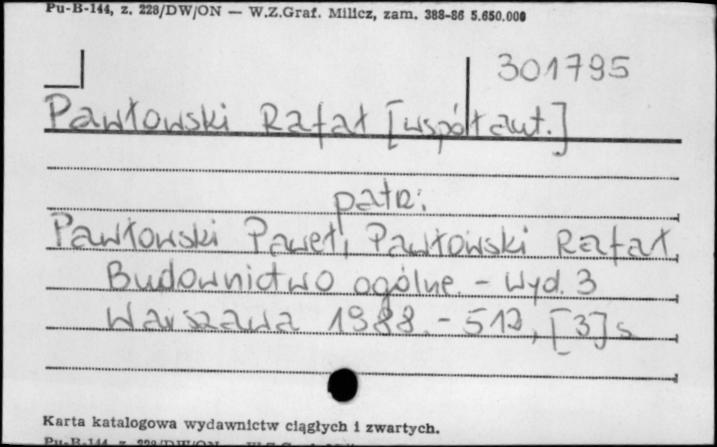 Pu-B-144, z. 228/DW/ON — W.Z.Graf. Milicz, zam. 388-86 5.650.000
301795
Pawłowski Rafał [współaut.]
patrz:
Pawłowski Paweł, Pawłowski Rafał
Budownictwo ogólne. - Wyd. 3
Warszawa 1988. - 512, [3] s
Karta katalogowa wydawnictw ciągłych i zwartych.
Pu-B-144 z. 228/DW/ON — W.Z.Graf.